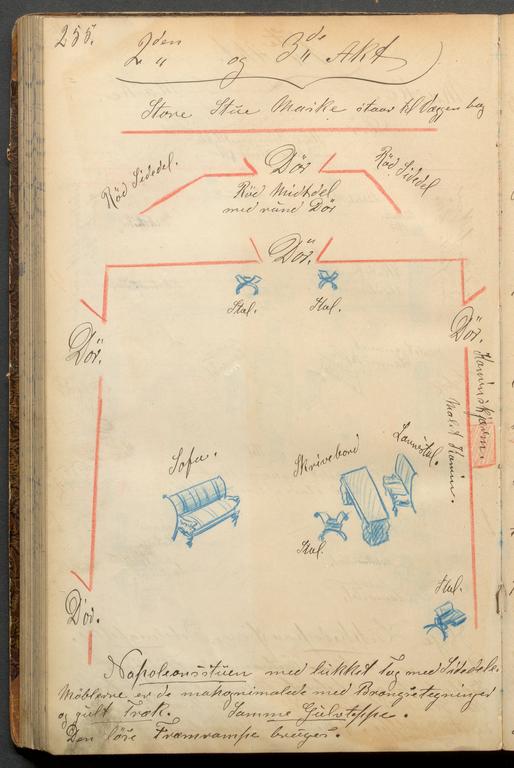 255.
2den og 3die Akt
Store Stue Maske staar til Væggen bag
Rød Sidedel.
Dör
Rød Sidedel
Rød Midtdel
med rund Dör
Dör.
Stol.
Stol.
Dör.
Dör.
Kaminskjærm.
Malet Kamin.
Sofa.
Skrivebord
Lænestol.
Stol.
Stol.
Dör.
Napoleonsstuen med lukket Tag med Sidedele.
Möblerne er de mahognimalede med Bronzetegninger
og gult Træk. Samme Gulvteppe.
Den löse Framrampe bruges.